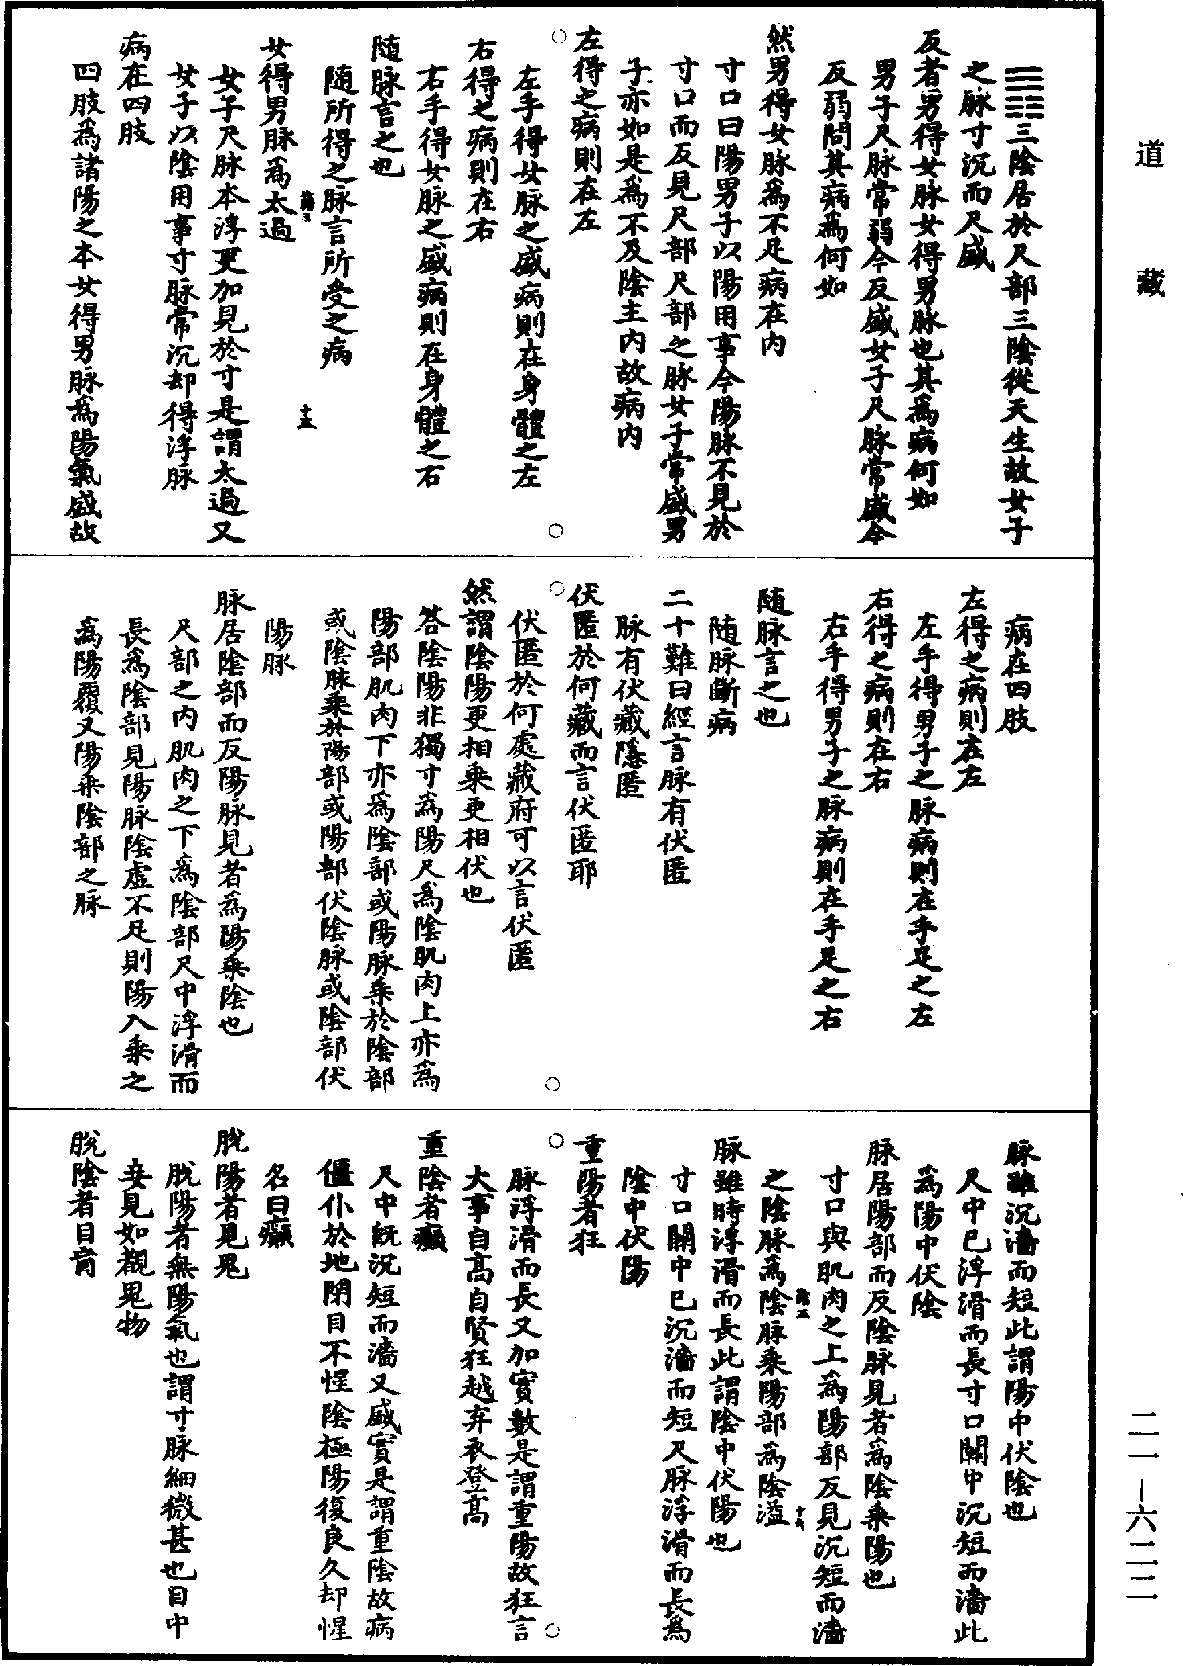 道藏
☰☷三陰居於尺部三陰從天生故女子
之脉寸沉而尺盛
反者男得女脉女得男脉也其爲病何如
男子尺脉常弱今反盛女子尺脉常盛今
反弱問其病爲何如
然男得女脉爲不足病在內
寸口曰陽男子以陽用事今陽脉不見於
寸口而反見尺部尺部之脉女子常盛男
子亦如是爲不及陰主內故病內
左得之病則在左
左手得女脉之盛病則在身體之左
右得之病則在右
右手得女脉之盛病則在身體之右
隨脉言之也
隨所得之脉言所受之病
女得男脉爲太過
女子尺脉本浮更加見於寸是謂太過又
女子以陰用事寸脉常沉却得浮脉
病在四肢
四肢爲諸陽之本女得男脉爲陽氣盛故
病在四肢
左得之病則在左
左手得男子之脉病則在手足之左
右得之病則在右
右手得男子之脉病則在手足之右
隨脉言之也
隨脉斷病
二十難曰經言脉有伏匿
脉有伏藏隱匿
伏匿於何藏而言伏匿耶
伏匿於何處藏府可以言伏匿
然謂陰陽更相乘更相伏也
答陰陽非獨寸爲陽尺爲陰肌肉上亦爲
陽部肌肉下亦爲陰部或陽脉乘於陰部
或陰脉乘於陽部或陽部伏陰脉或陰部伏
陽脉
脉居陰部而反陽脉見者爲陽乘陰也
尺部之內肌肉之下爲陰部尺中浮滑而
長爲陰部見陽脉陰虛不足則陽入乘之
爲陽覆又陽乘陰部之脉
脉雖沉濇而短此謂陽中伏陰也
尺中已浮滑而長寸口關中沉短而濇此
爲陽中伏陰
脉居陽部而反陰脉見者爲陰乘陽也
寸口與肌肉之上爲陽部反見沉短而濇
之陰脉爲陰脉乘陽部爲陰溢
脉雖時浮滑而長此謂陰中伏陽也
寸口關中已沉濇而短尺脉浮滑而長爲
陰中伏陽
重陽者狂
脉浮滑而長又加實數是謂重陽故狂言
大事自高自賢狂越弃衣登高
重陰者癲
尺中既沉短而濇又盛實是謂重陰故病
僵仆於地閉目不惺陰極陽復良久却惺
名曰癲
脫陽者見鬼
脫陽者無陽氣也謂寸脉細微甚也目中
妄見如觀鬼物
脫陰者目盲
二一—六二二